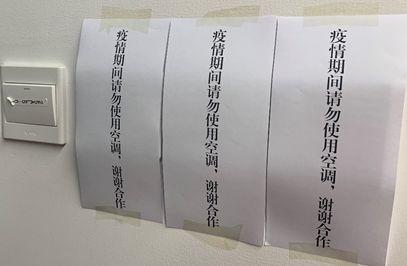 疫情期间请勿使用空调，谢谢合作
疫情期间请勿使用空调，谢谢合作
疫情期间请勿使用空调，谢谢合作